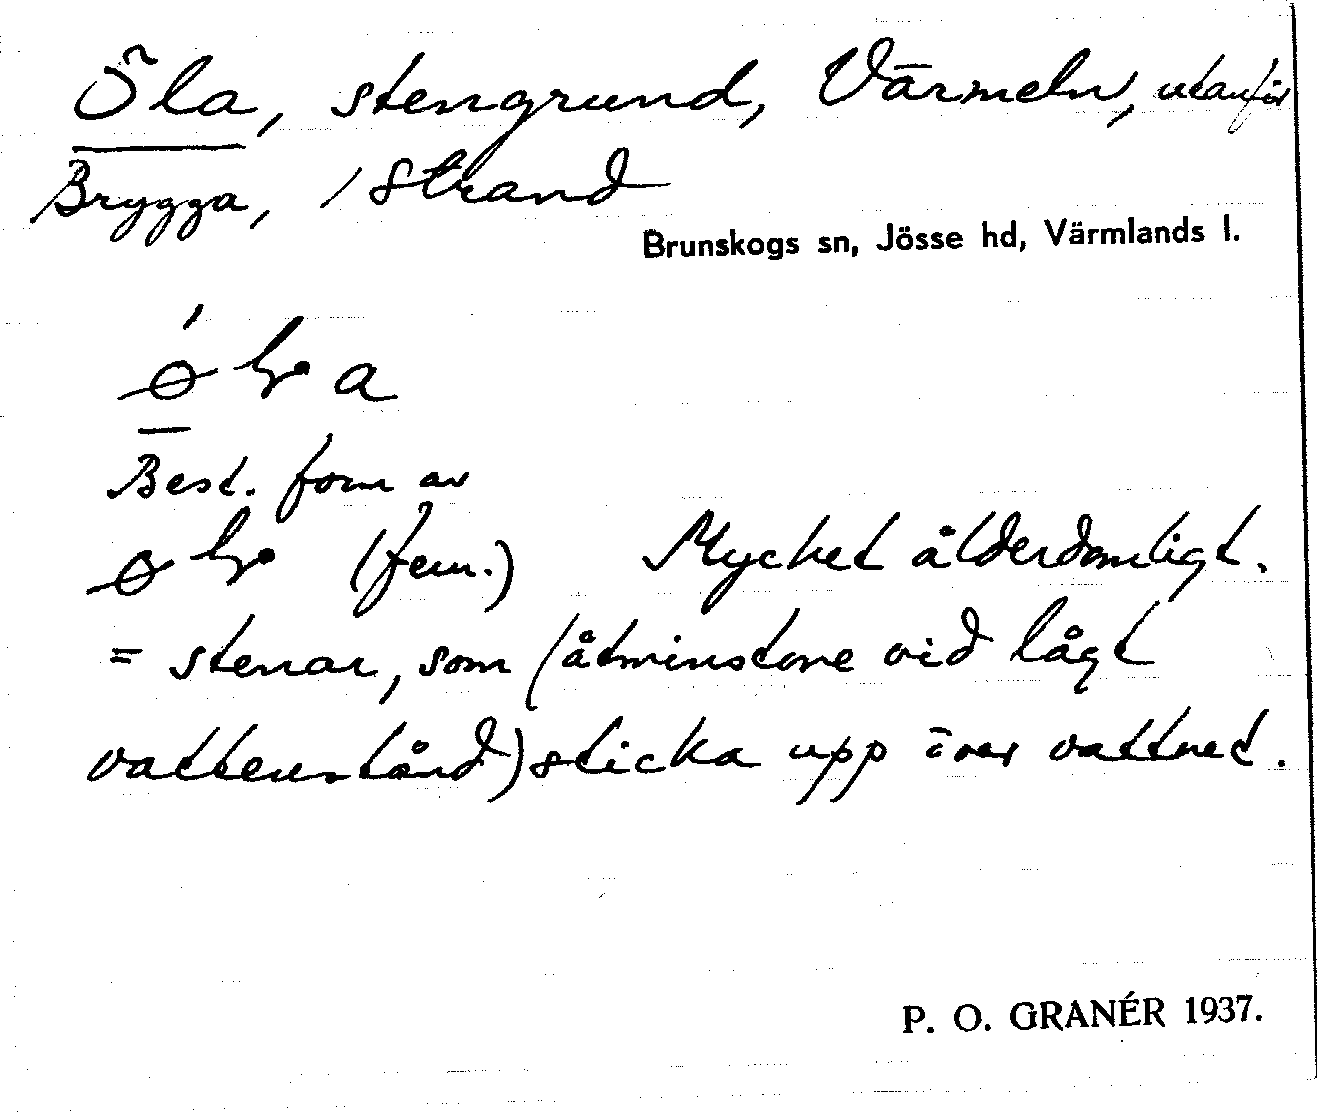 Öla, stengrund, Värmeln, utanför
Brygga, / Strand
Brunskogs sn, Jösse hd, Värmlands l.
Best. form av
(fem.) Mycket ålderdomligt.
= stenar, som (åtminstone vid lågt
vattenstånd) sticka upp över vattnet.
P. O. GRANÉR 1937.